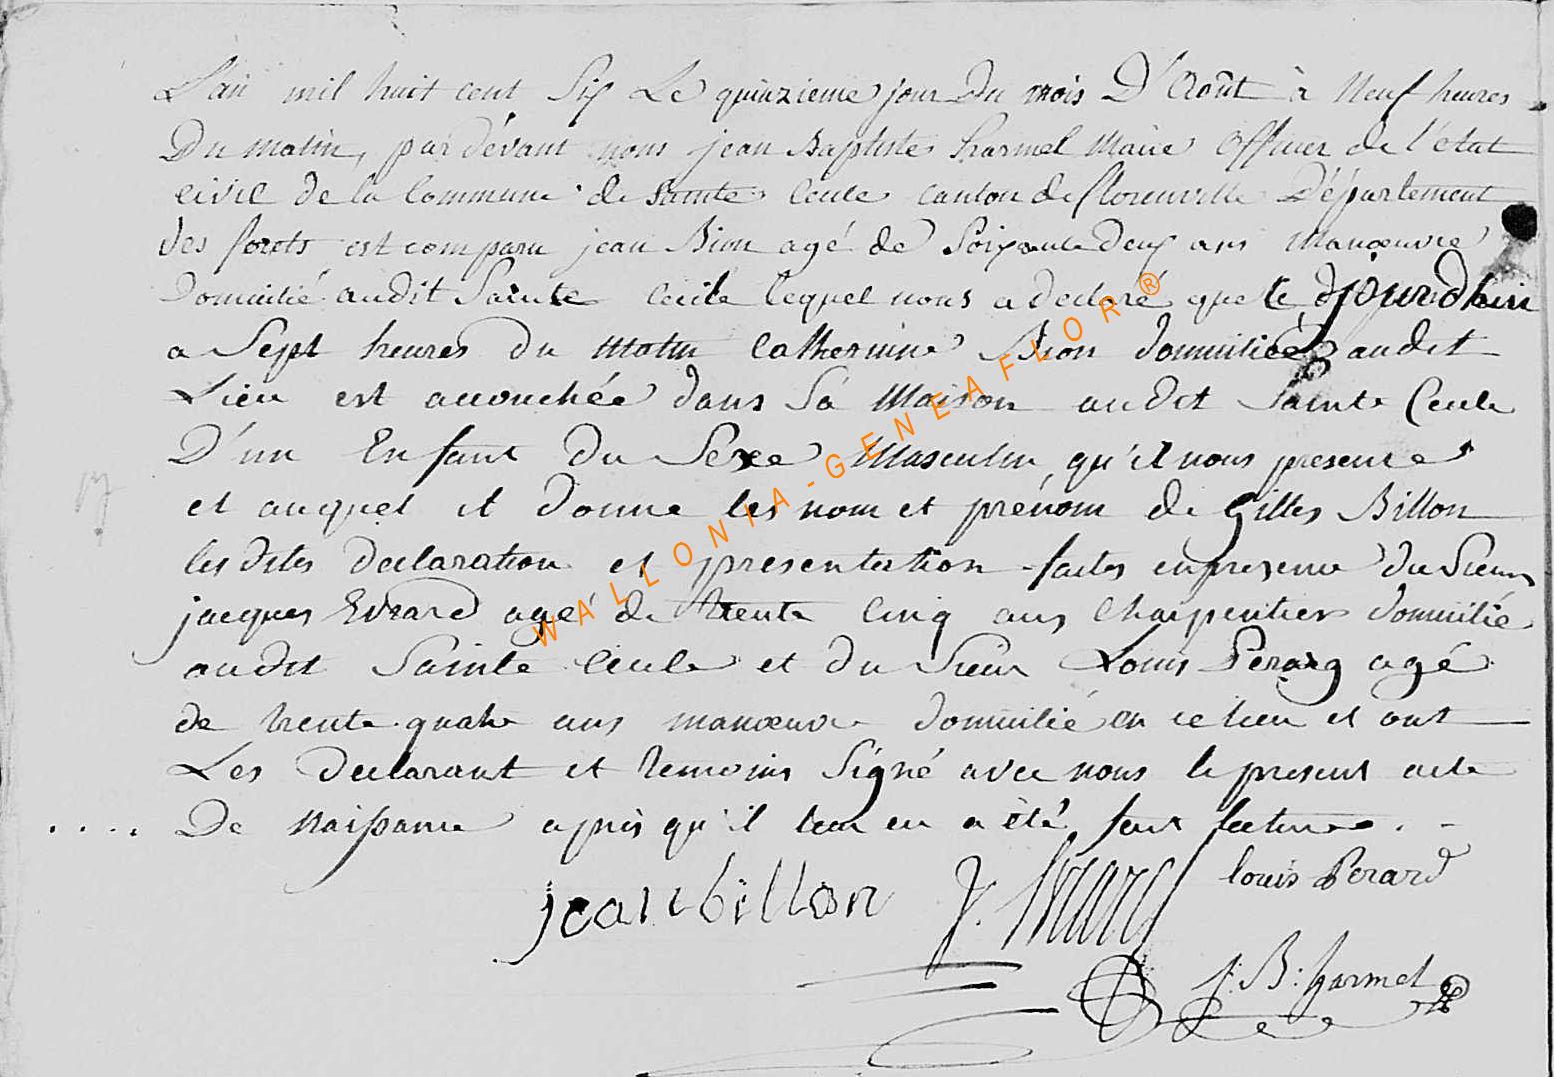 L'an mil huit cent Six Le quinzieme jour Du mois D'Août à Neuf heures
Du matin, pardevant nous jean Baptiste harmel Maire Officier de l'état
civil de la Commune de Sainte Cecile canton de florenville Département
des forets est comparu jean Bion agé de Soixante deux ans Manœuvre
Domicilié audit Sainte Cecile lequel nous a declaré que le djourdhui
a Sept heures du Matin Catherine Bion domiciliée audit
Lieu est accouchée dans Sa Maison audit Sainte Cecile
D'un Enfant du Sexe Masculin qu'il nous presente
et auquel il donne les nom et prénom de Gilles Billon
les dites declaration et presentation faites en presence du Sieur
jacques Evrard agé de trente Cinq ans Charpentier domicilié
audit Sainte Cecile et du Sieur Louis Perard agé
de trente quatre ans manœuvre domicilié en ce lieu et ont
Les declarant et temoins Signé avec nous le present acte
De Naissance après qu'il leur en a été fait lecture.
jean billon J. Evrard louis Perard
J: B: harmel
WALLONIA-GENEAFLOR®